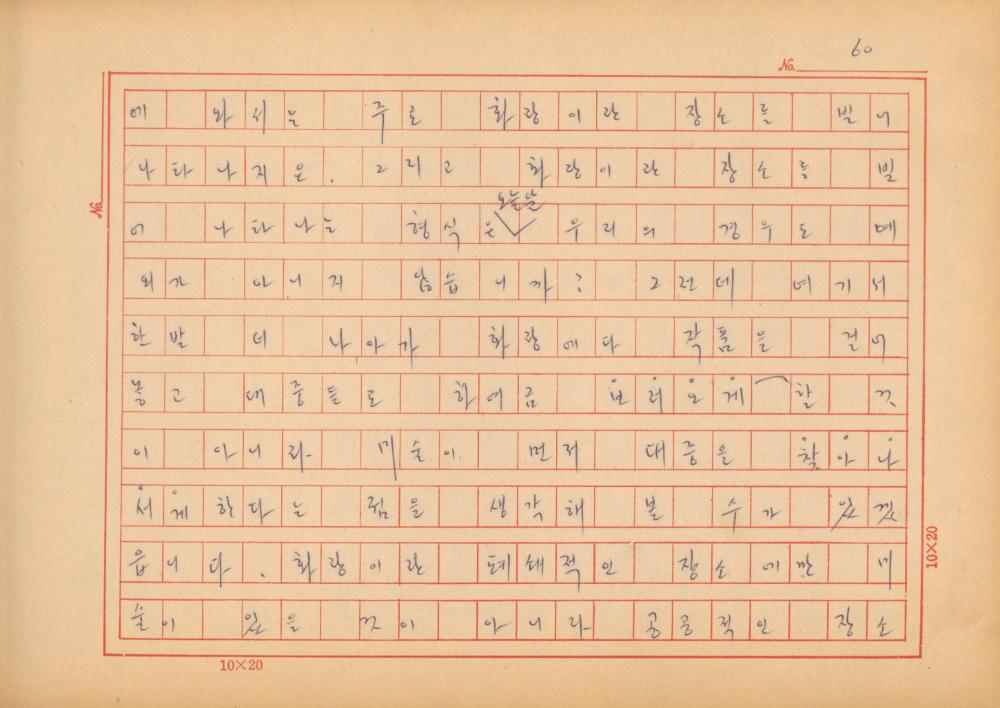 60
No.
에 와서는 주로 화랑이란 장소를 빌니
나타나지요. 그리고 화랑이란 장소를 빌
오늘날
어 나타나는 형식은 우리의 경우도 예
외가 아니지 않습니까? 그런데 여기서
한발 더 나아가 화랑에다 작품을 걸어
놓고 대중들로 하여금 보러오게 할 것
이 아니라 미술이 먼저 대중을 찾아나
서게 한다는 점을 생각해 볼 수가 있겠
읍니다. 화랑이란 폐쇄적인 장소에만 미
술이 있을 것이 아니라 공공적인 장소
No.
10×20
10×20